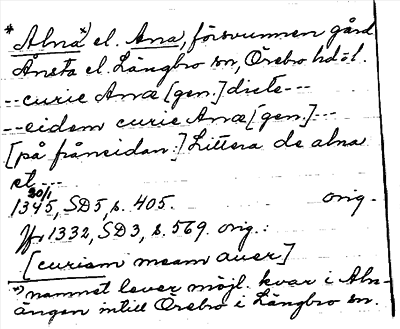 * Alna *) el. Ana, försvunnen gård
Ansta el. Längbro sn, Örebro hd ö l.
-- curie Anæ [gen.] dicte ---
-- eidem curie Anæ [gen.] --
[på frånsidan:] Littera de alna
et ...
1345 30/1, SD5, s. 405. orig.
Jfr 1332, SD3, s. 569. orig.:
[curiam meam auer]
*) namnet lever möjl. kvar i Aln-
ängen intill Örebro i Längbro sn.